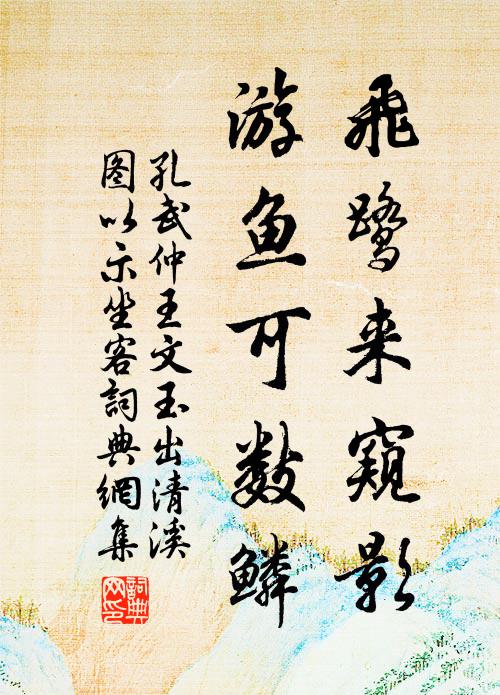 飛鷺来窺影
游鱼可数鳞
孔武仲王文玉出清溪
图以示坐客詞典網集
詞典网印